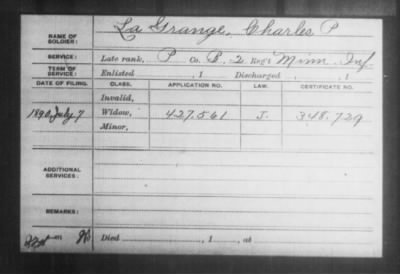 NAME OF SOLDIER: La Grange, Charles P
SERVICE: Late rank, P Co. B, 2 Reg't Minn. Inf
TERM OF SERVICE: Enlisted , 1 Discharged , 1
DATE OF FILING. CLASS. APPLICATION NO. LAW. CERTIFICATE NO.
Invalid,
1890, July 7 Widow, 427.561 J. 348.729
Minor,
ADDITIONAL SERVICES:
REMARKS:
Died , 1 , at